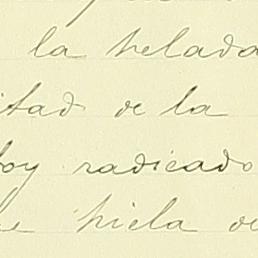 la helada
itad de la
toy radicado
se hiela de